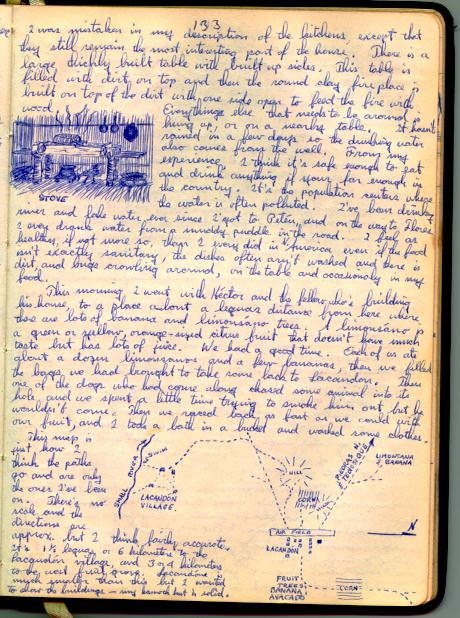 133
I was mistaken in my description of the kitchens, except that
they still remain the most interesting part of the house. There is a
large thickly built table with built up sides. This table is
filled with dirt on top and then the round clay fire place is
built on top of the dirt with one side open to feed the fire with
wood.
Everything else that needs to be around is
hung up, or on a nearby table. It hasn't
rained in a few days so the drinking water
also comes from the well. From my
experience I think it's safe enough to eat
and drink anything if your far enough in
the country. It's the population centers where
the water is often polluted. I've been drinking
STOVE
river and lake water ever since I got to Peten, and on the way to Flores
I even drank water from a muddy puddle in the road. I feel as
healthy, if not more so, than I ever did in America even if the food
isn't exactly sanitary, the dishes often aren't washed and there is
dirt and bugs crawling around, on the table and occasionly in my
food.
This morning I went with Hector and the fellow who's building
his house, to a place about a leguas distance from here where
there are lots of banana and limonsano trees. A limonsano is
a green or yellow, orange-sized citrus fruit that doesn't have much
taste but has lots of juice. We had a good time. Each of us ate
about a dozen limonsanos and a few bananas, then we filled
the bags we had brought to take some back to Lacandon. Then
one of the dogs who had come along chased some animal into its
hole, and we spent a little time trying to smoke him out, but he
wouldn't come. Then we raced back as fast as we could with
our fruit, and I took a bath in a bucket and washed some clothes.
This map is
just how I
think the paths
go and are only
the ones I've been
on. There's no
scale and the
directions are
approx. but I think fairly accurate.
It's 1½ leguas or 6 kilometers to the
Lacandon village, and 3 or 4 kilometers
to the west fruit grove. Lacandon is
much smaller than this but I wanted
to show the buildings - my hamock hut is solid.
SMALL RIVER
SWIM
LACANDON
VILLAGE
HILL
CORN
PIEDRAS
TENOSIQUE
LIMONTANA
BANANA
AIR FIELD
LACANDON
N
FRUIT
TREES
BANANA
AVACADO
CORN